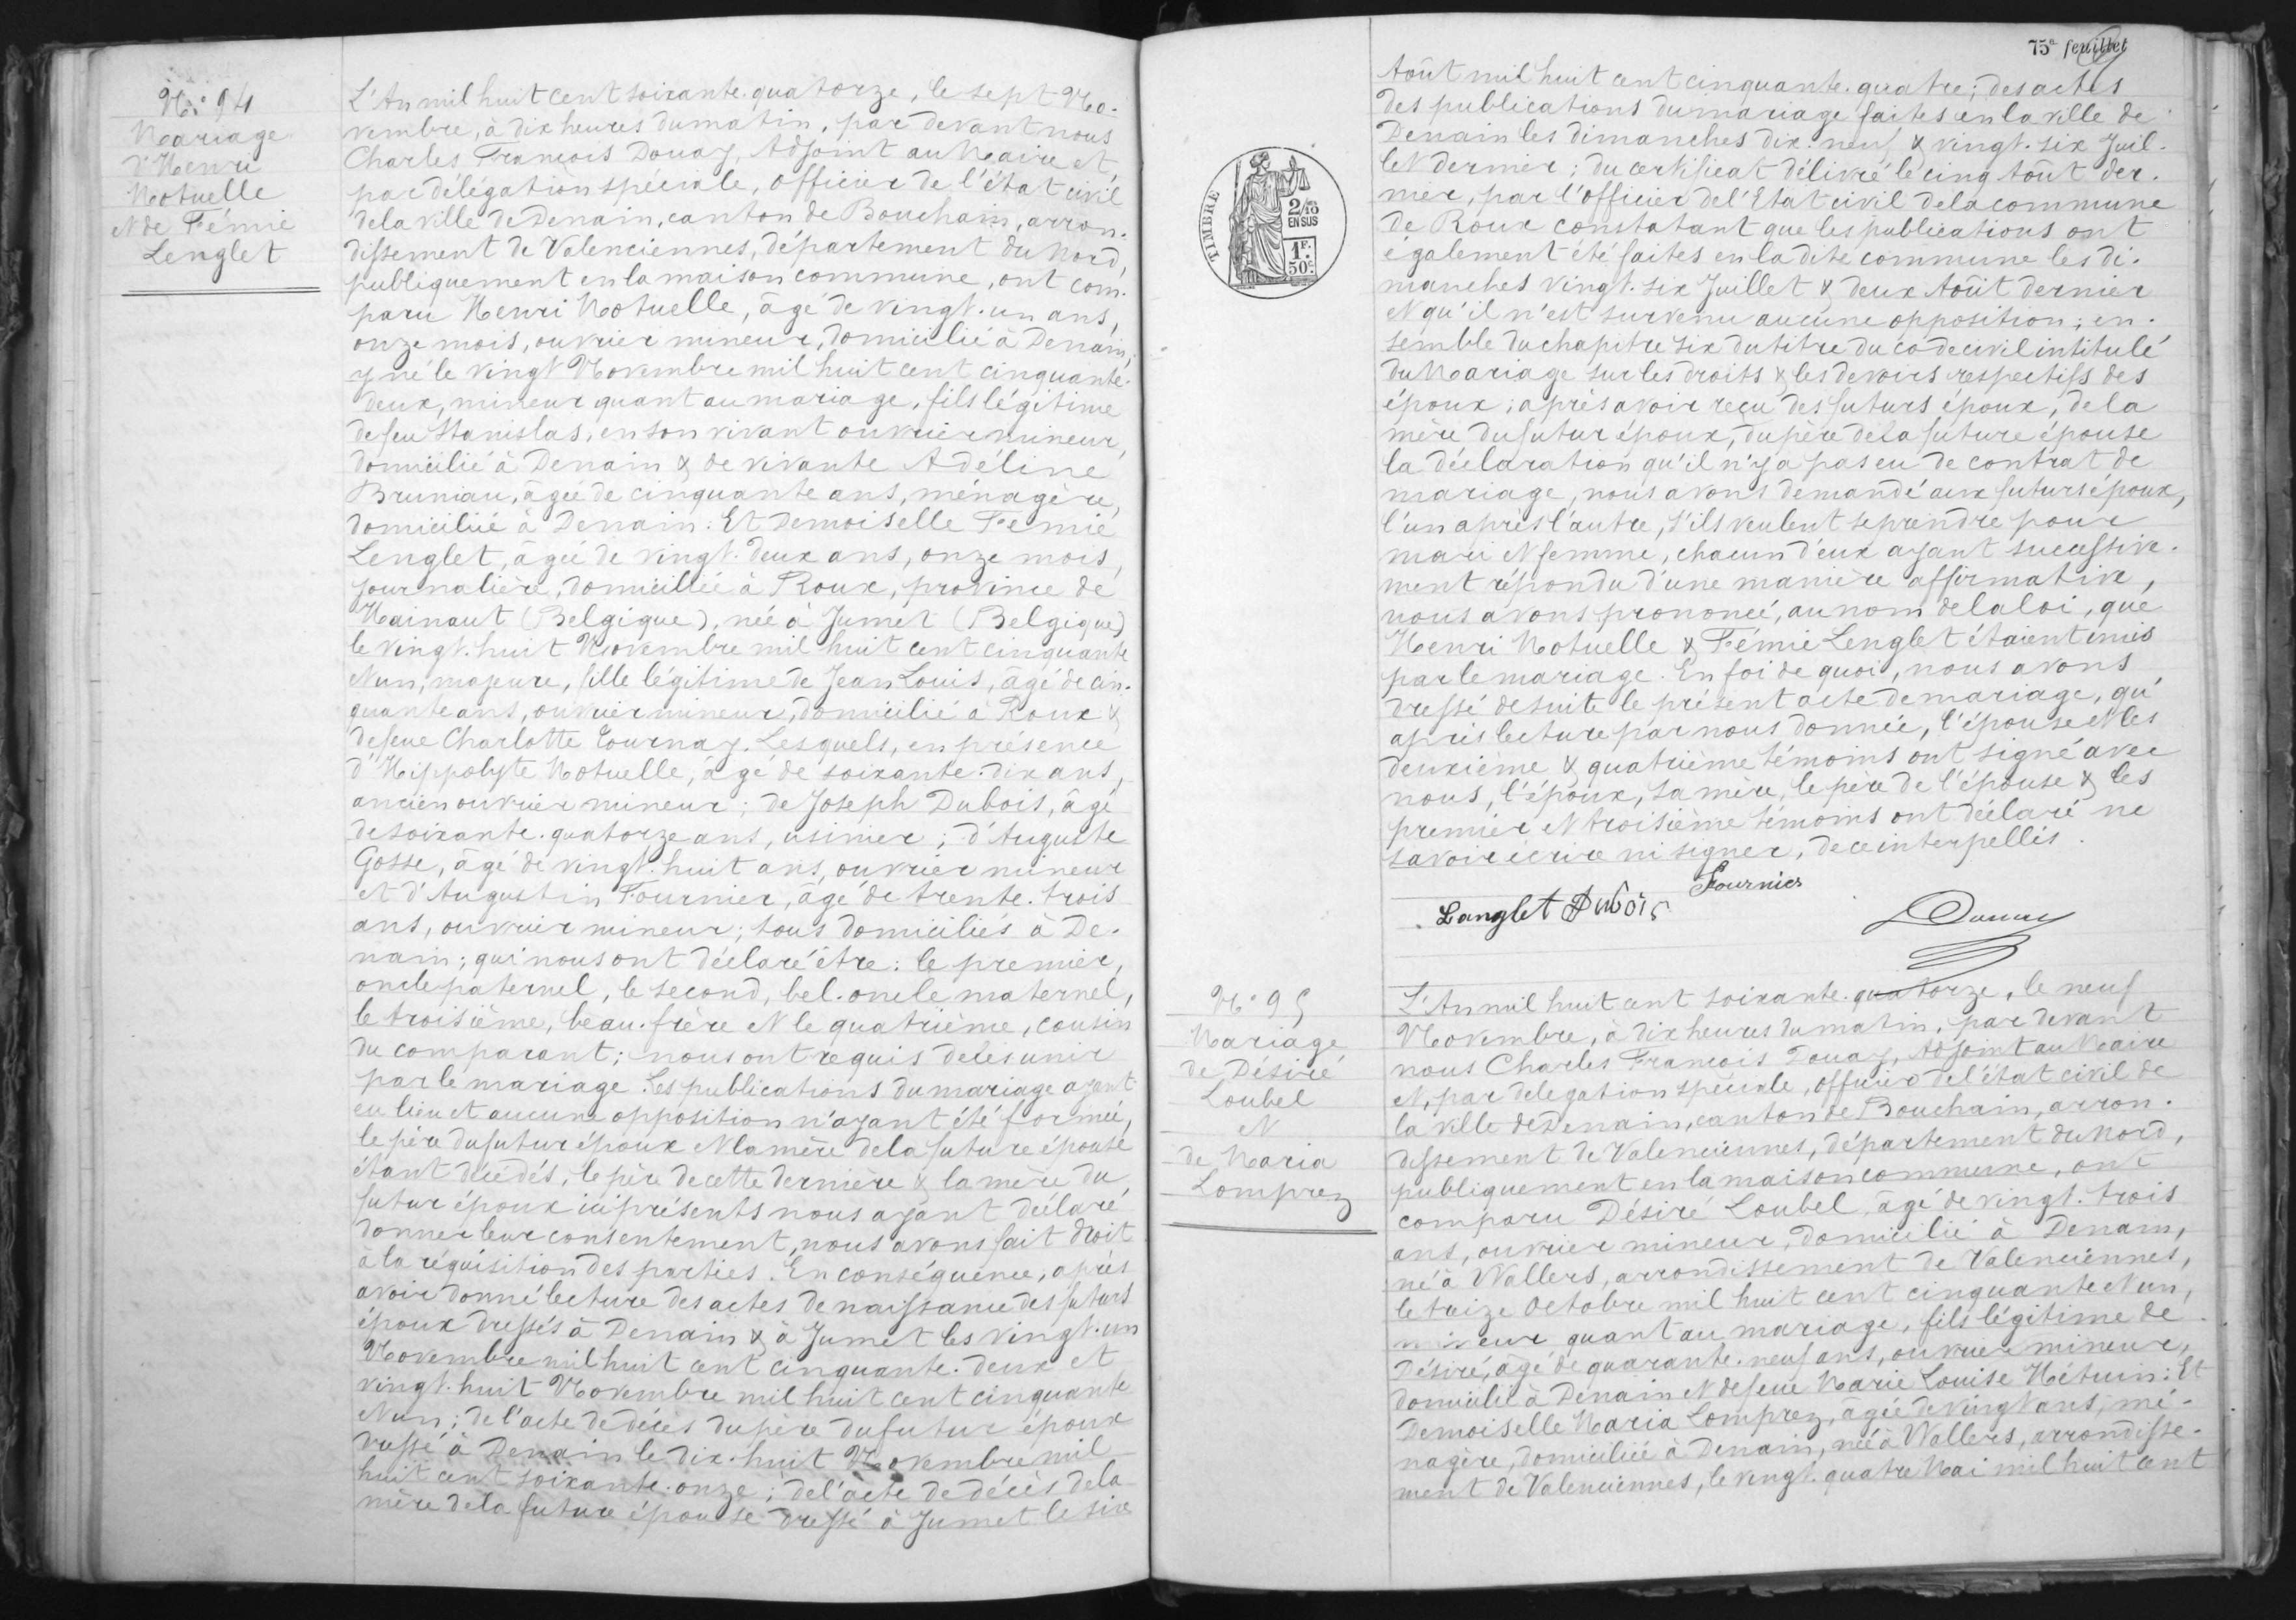 N.° 94
Mariage
d'Henri
Motuelle
et de Fémie
Lenglet
L'An mil huit cent soixante-quatorze, le sept No-
vembre, à dix heures du matin, par devant nous
Charles François Douay, Adjoint au Maire et,
par délégation spéciale, officier de l'état civil
de la ville de Denain, canton de Bouchain, arron-
dissement de Valenciennes, département du Nord,
publiquement en la maison commune, ont com-
paru Henri Motuelle, âgé de vingt-un ans,
onze mois, ouvrier mineur, domicilié à Denain,
y né le vingt Novembre mil huit cent cinquante-
deux, mineur quant au mariage, fils légitime
de feu Stanislas, en son vivant ouvrier mineur,
domicilié à Denain & de vivante Adéline
Bruniau, âgée de cinquante ans, ménagère,
domiciliée à Denain. Et Demoiselle Femie
Lenglet, âgée de vingt-deux ans, onze mois,
journalière, domiciliée à Roux, province de
Hainaut (Belgique), née à Jumet (Belgique)
le vingt-huit Novembre mil huit cent cinquante
et un, majeure, fille légitime de Jean Louis, âgé de cin-
quante ans, ouvrier mineur, domicilié à Roux &
de feue Charlotte Tournay. Lesquels, en présence
d'Hippolyte Motuelle, âgé de soixante-dix ans,
ancien ouvrier mineur; de Joseph Dubois, âgé
de soixante-quatorze ans, usinier; d'Auguste
Gosse, âgé de vingt-huit ans, ouvrier mineur
et d'Augustin Fournier, âgé de trente-trois
ans, ouvrier mineur; tous domiciliés à De-
nain; qui nous ont déclaré être: le premier,
oncle paternel, le second, bel-oncle maternel,
le troisième, beau-frère et le quatrième, cousin
du comparant; nous ont requis de les unir
par le mariage. Les publications du mariage ayant
eu lieu et aucune opposition n'ayant été formée,
le père du futur époux et la mère de la future épouse
étant décédés, le père de cette dernière & la mère du
futur époux ici présents nous ayant déclaré
donner leur consentement, nous avons fait droit
à la réquisition des parties. En conséquence, après
avoir donné lecture des actes de naissance des futurs
époux dressés à Denain & à Jumet les vingt-un
Novembre mil huit cent cinquante-deux et
vingt-huit Novembre mil huit cent cinquante
et un; de l'acte de décès du père du futur époux
dressé à Denain le dix-huit Novembre mil
huit cent soixante-onze; de l'acte de décès de la
mère de la future épouse dressé à Jumet le six
75e feuillet
Août mil huit cent cinquante-quatre; des actes
des publications du mariage faites en la ville de
Denain les dimanches dix-neuf & vingt-six Juil-
let dernier; du certificat délivré le cinq Août der-
nier, par l'officier de l'Etat civil de la commune
de Roux constatant que les publications ont
également été faites en la dite commune les di-
manches vingt-six Juillet & deux Août dernier
et qu'il n'est survenu aucune opposition; en-
semble du chapitre six du titre du code civil intitulé
du Mariage sur les droits & les devoirs respectifs des
époux; après avoir reçu des futurs époux, de la
mère du futur époux, du père de la future épouse
la déclaration qu'il n'y a pas eu de contrat de
mariage, nous avons demandé aux futurs époux,
l'un après l'autre, s'ils veulent se prendre pour
mari et femme, chacun d'eux ayant successive-
ment répondu d'une manière affirmative,
nous avons prononcé, au nom de la loi, que
Henri Motuelle & Fémie Lenglet étaient unis
par le mariage. En foi de quoi, nous avons
dressé de suite le présent acte de mariage, qu'
après lecture par nous donnée, l'épouse et les
deuxième & quatrième témoins ont signé avec
nous, l'époux, sa mère, le père de l'épouse & les
premier et troisième témoins ont déclaré ne
savoir écrire ni signer, de ce interpellés.
Langlet Dubois Fournier
Douay
TIMBRE
2/10 EN SUS
1F. 50c.
N.° 95
Mariage
de Désiré
Loubel
et
de Maria
Lomprez
L'An mil huit cent soixante-quatorze, le neuf
Novembre, à dix heures du matin, par devant
nous Charles François Douay, Adjoint au Maire
et, par delegation spéciale, officier de l'état civil de
la ville de Denain, canton de Bouchain, arron-
dissement de Valenciennes, département du Nord,
publiquement en la maison commune, ont
comparu Désiré Loubel, âgé de vingt-trois
ans, ouvrier mineur, domicilié à Denain,
né à Wallers, arrondissement de Valenciennes,
le treize Octobre mil huit cent cinquante et un,
mineur quant au mariage, fils légitime de
Désiré, âgé de quarante-neuf ans, ouvrier mineur,
domicilié à Denain et de feue Marie Louise Hétuin: Et
Demoiselle Maria Lomprez, âgée de vingt ans, mé-
nagère, domiciliée à Denain, née à Wallers, arrondisse-
ment de Valenciennes, le vingt-quatre Mai mil huit cent